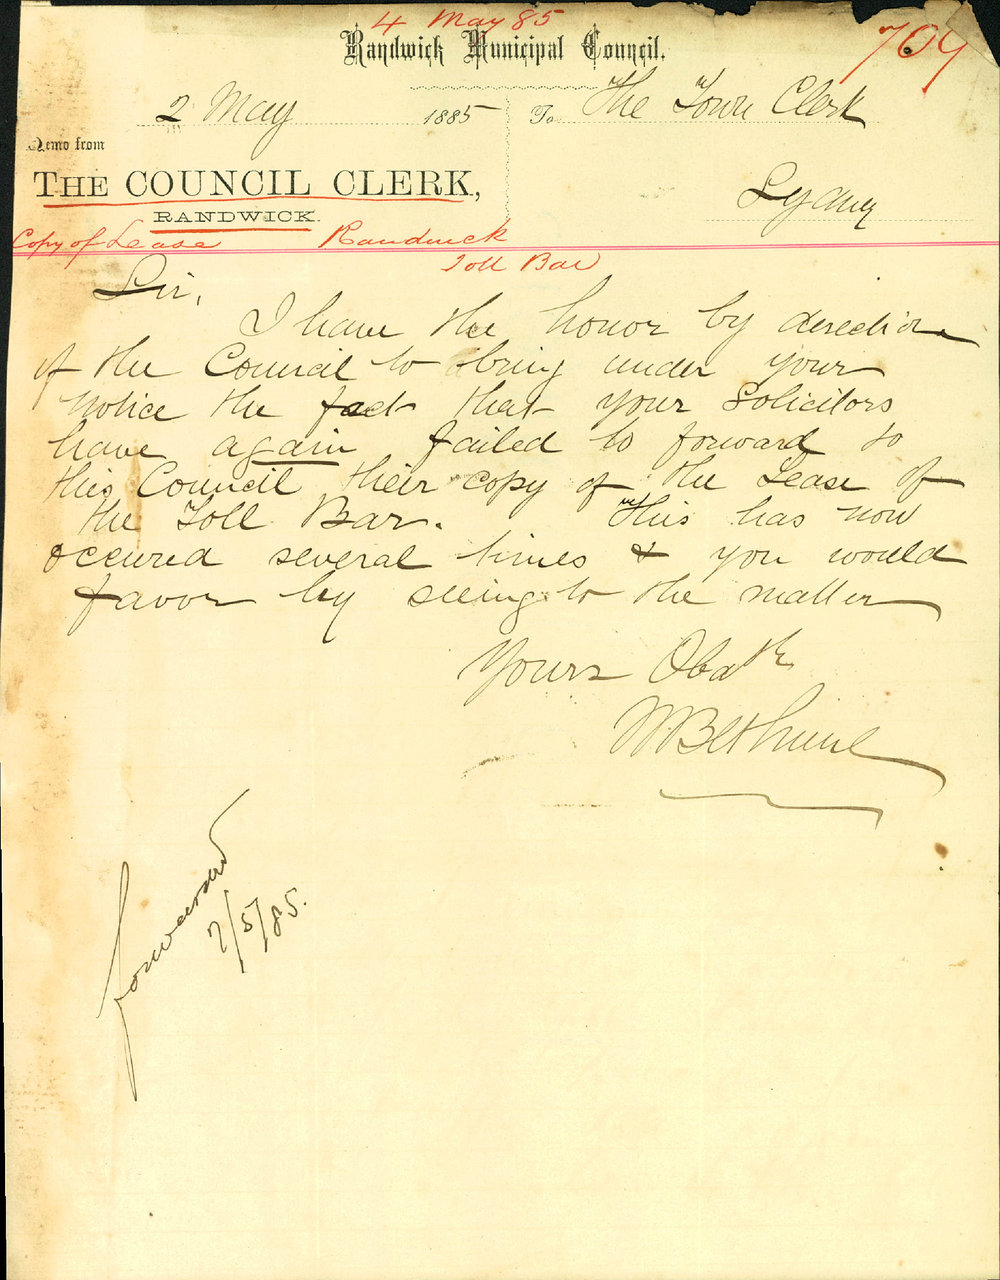 4 May 85
709
Randwick Municipal Council.
2 May 1885 To The Town Clerk
Memo from
THE COUNCIL CLERK,
Sydney
RANDWICK.
Copy of Lease Randwick
Toll Bar
Sir,
I have the honor by direction
of the Council to bring under your
notice the fact that your Solicitors
have again failed to forward to
this Council their copy of the Lease of
the Toll Bar. This has now
occured several times & you would
favor by seeing to the matter
Yours Obdt
W Bethune
forwarded
7/5/85.